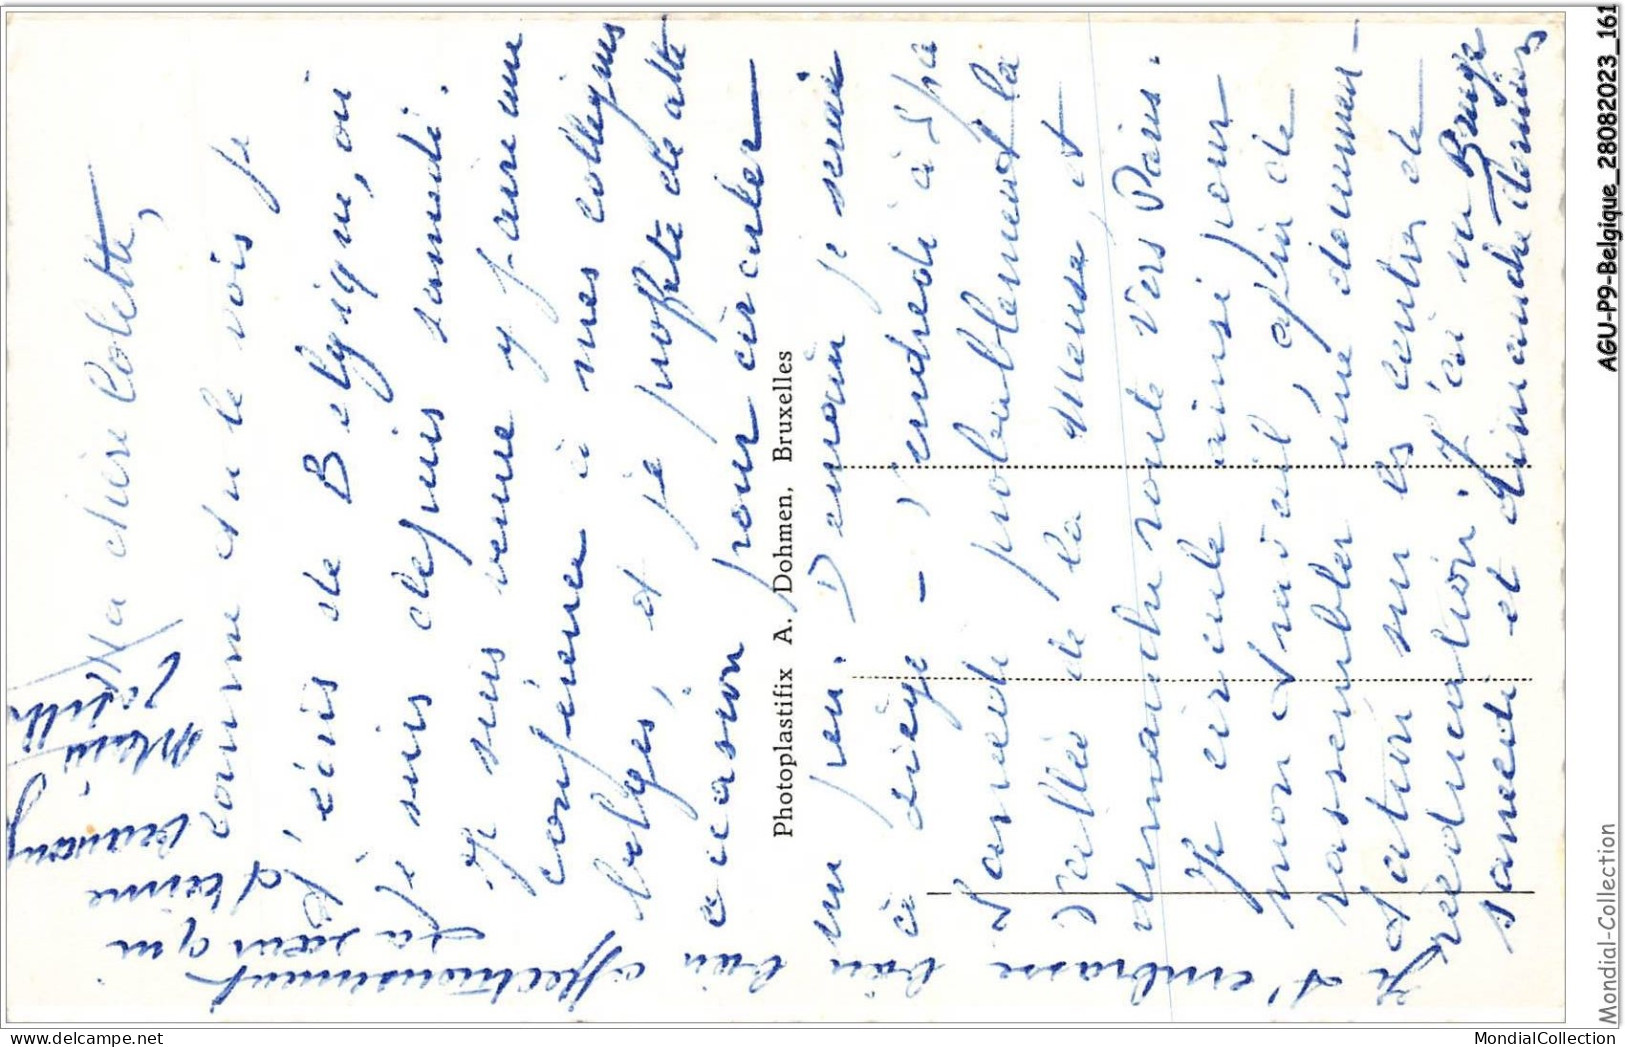 Ma chère Colette,
comme tu le vois je
t'écris de Belgique, où
je suis depuis samedi.
Je suis venue y faire une
conférence à mes collègues
belges, et je profite de cette
occasion pour circuler
un peu. Demain je serai
à Liège - Vendredi à Spa
Samedi probablement la
vallée de la Meuse, et
dimanche route vers Paris.
Je circule ainsi pour
mon travail, afin de
rassembler une documen-
tation sur les centres de
rééducation. J'ai vu Bruges
samedi et dimanche derniers
Je t'embrasse bien bien affectueusement
ta sœur qui
t'aime
beaucoup
Photoplastifix A. Dohmen, Bruxelles
AGU-P9-Belgique_28082023_161
Mondial-Collection
MondialCollection